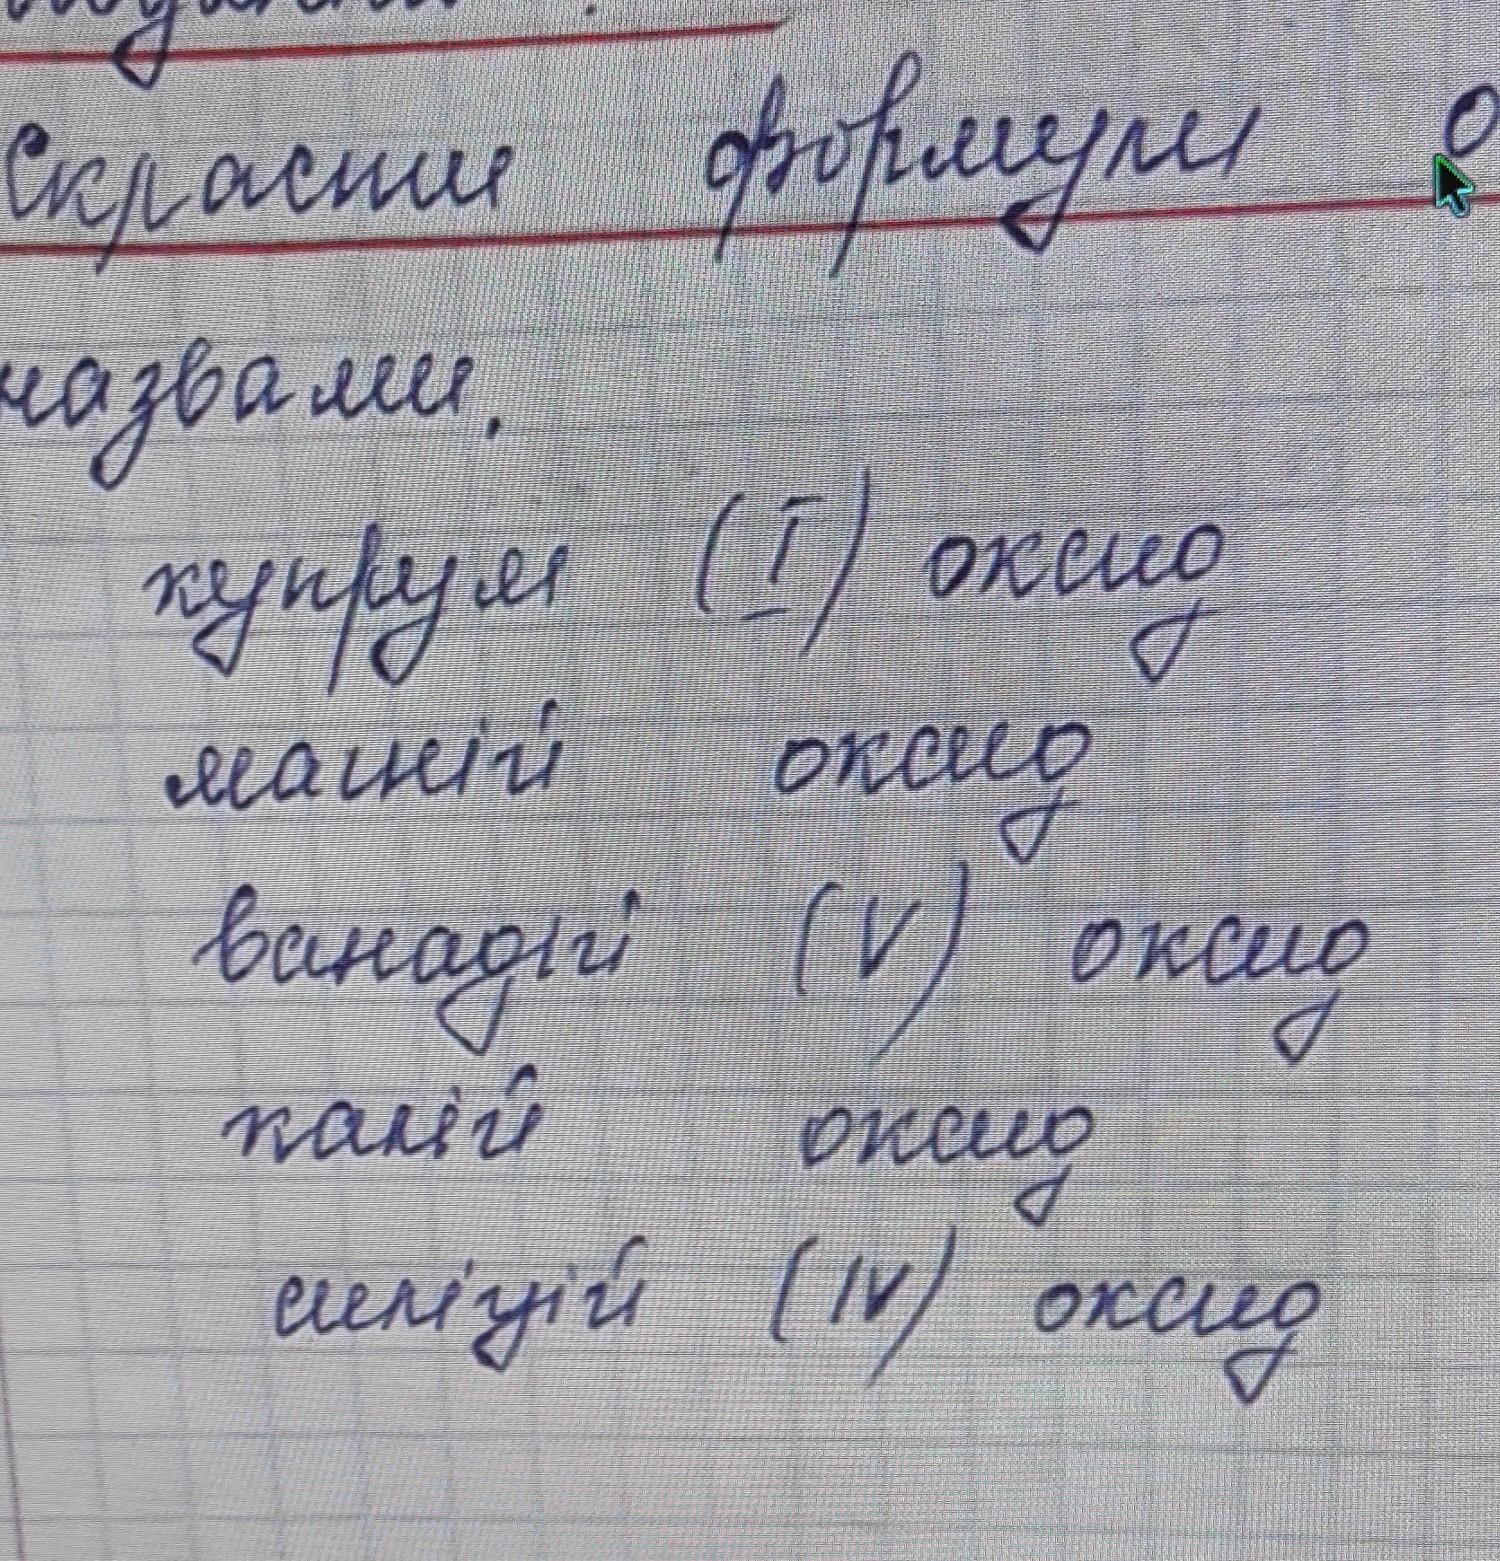 Скласти формули о
назвами.
купрум (I) оксид
магній оксид
ванадій (V) оксид
калій оксид
силіцій (IV) оксид